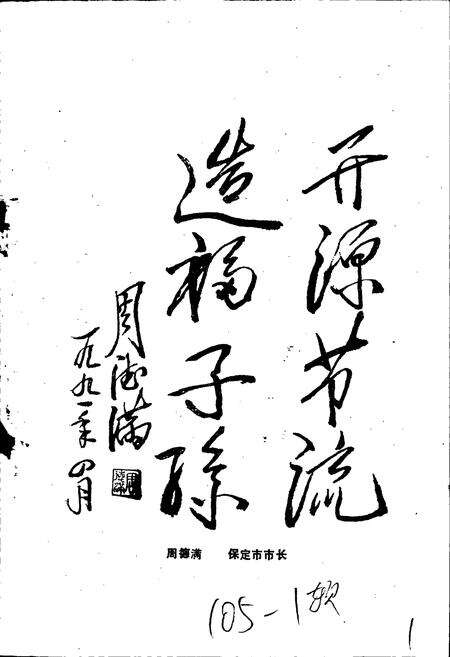 开源节流
造福子孙
周德满
一九九一年四月
周德满 保定市市长
105-1
1